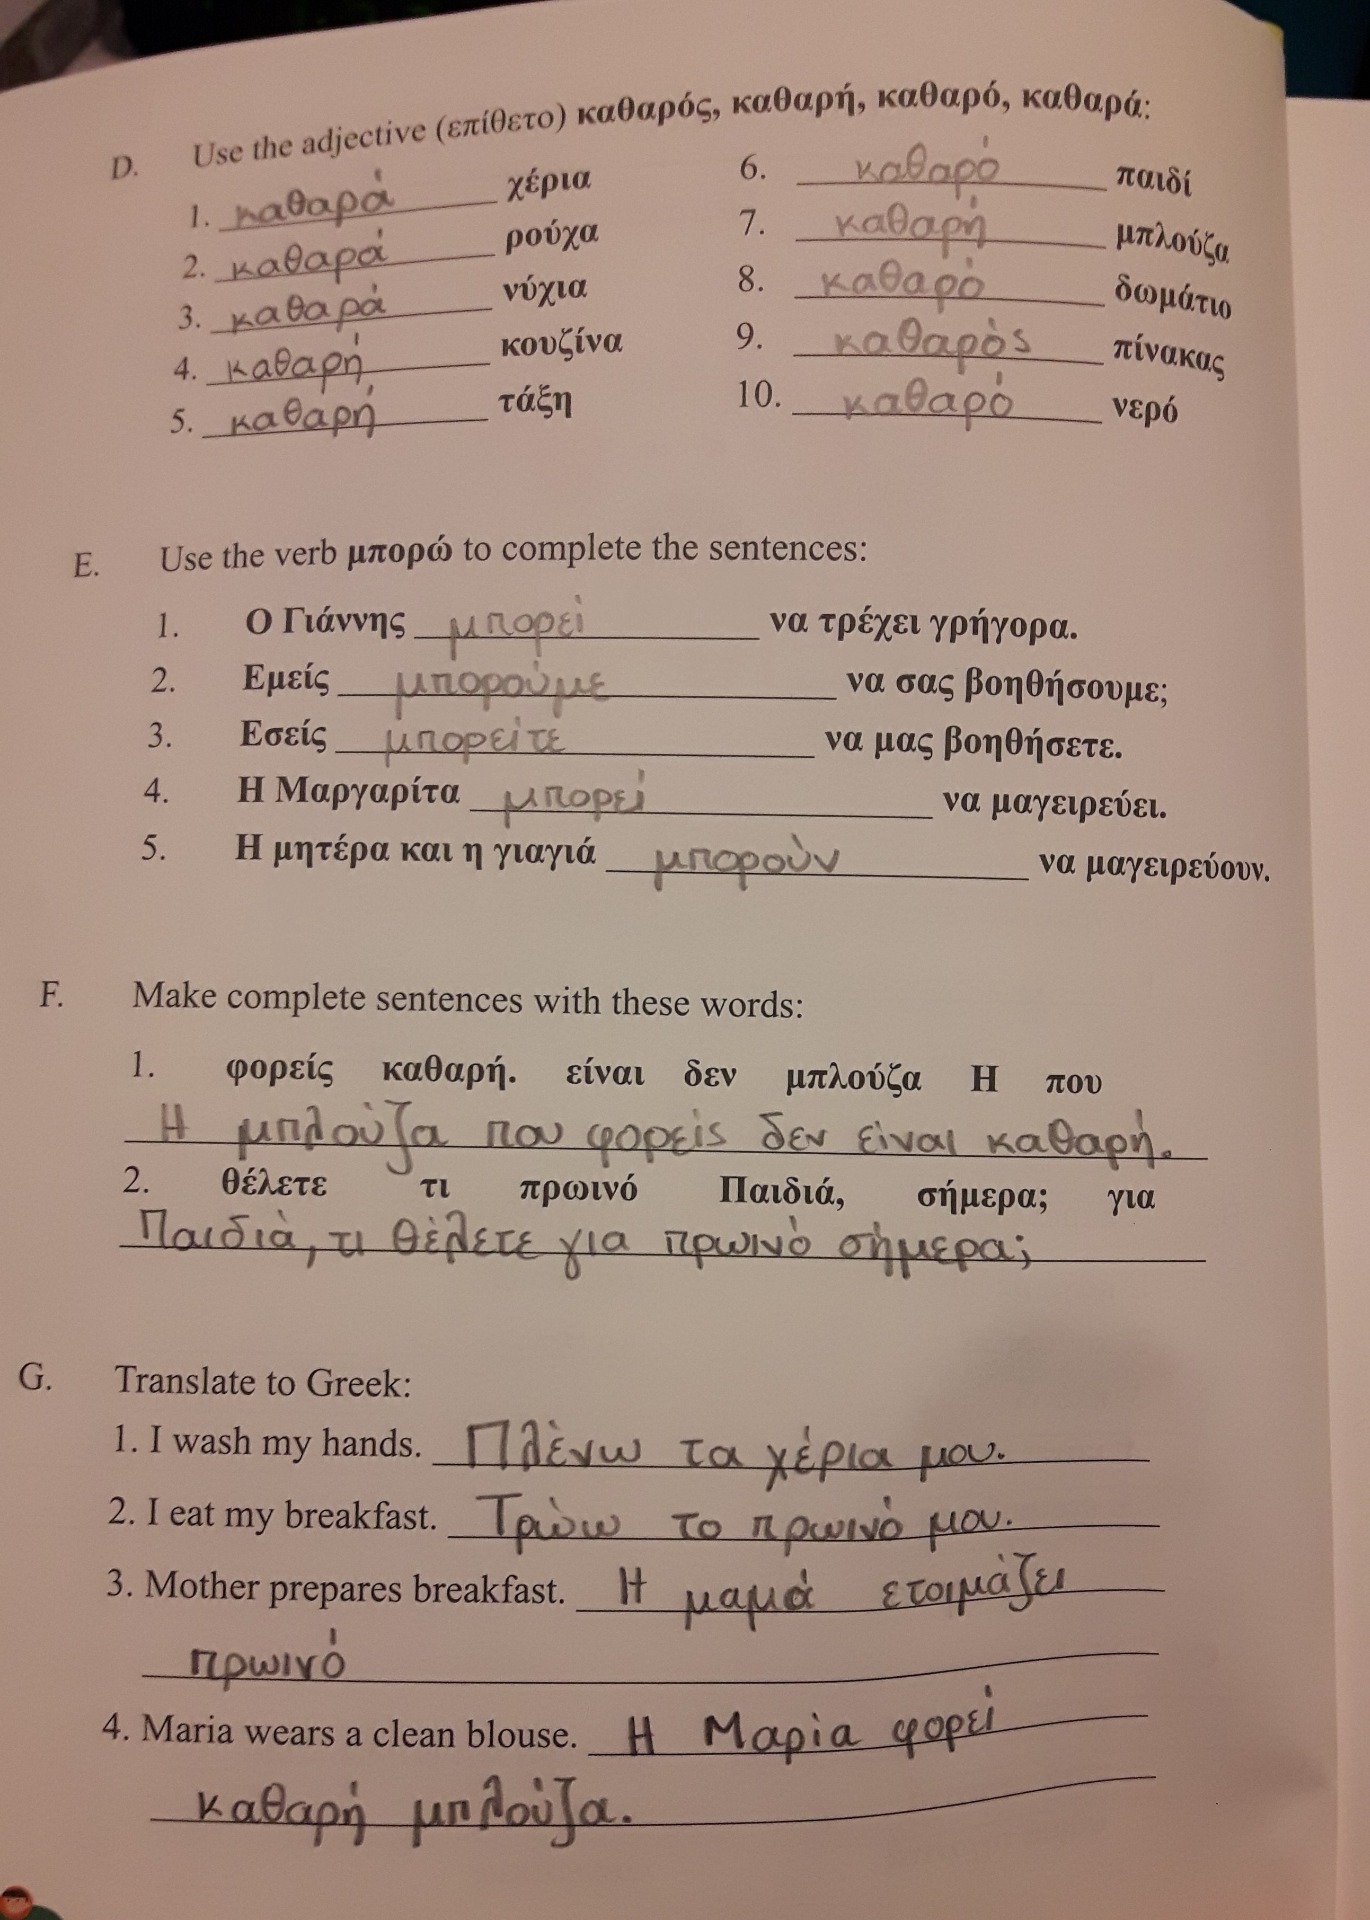 D. Use the adjective (επίθετο) καθαρός, καθαρή, καθαρό, καθαρά:
1. καθαρά χέρια
2. καθαρά ρούχα
3. καθαρά νύχια
4. καθαρή κουζίνα
5. καθαρή τάξη
6. καθαρό παιδί
7. καθαρή μπλούζα
8. καθαρό δωμάτιο
9. καθαρός πίνακας
10. καθαρό νερό
E. Use the verb μπορώ to complete the sentences:
1. Ο Γιάννης μπορεί να τρέχει γρήγορα.
2. Εμείς μπορούμε να σας βοηθήσουμε;
3. Εσείς μπορείτε να μας βοηθήσετε.
4. Η Μαργαρίτα μπορεί να μαγειρεύει.
5. Η μητέρα και η γιαγιά μπορούν να μαγειρεύουν.
F. Make complete sentences with these words:
1. φορείς καθαρή. είναι δεν μπλούζα Η που
Η μπλούζα που φορείς δεν είναι καθαρή.
2. θέλετε τι πρωινό Παιδιά, σήμερα; για
Παιδιά, τι θέλετε για πρωινό σήμερα;
G. Translate to Greek:
1. I wash my hands. Πλένω τα χέρια μου.
2. I eat my breakfast. Τρώω το πρωινό μου.
3. Mother prepares breakfast. Η μαμά ετοιμάζει
πρωινό
4. Maria wears a clean blouse. Η Μαρία φορεί
καθαρή μπλούζα.